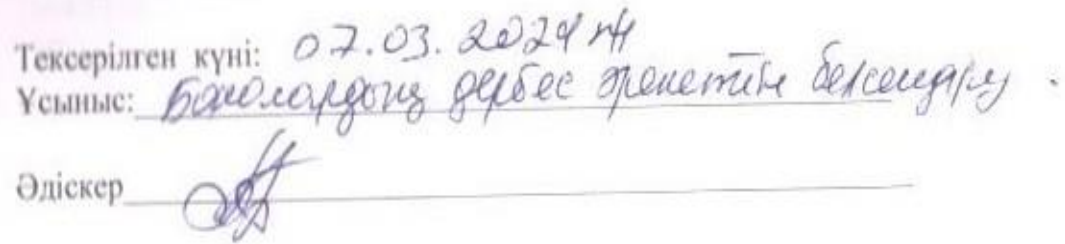 Тексерілген күні: 07.03.2024 ж
Ұсыныс: Балалардың дербес әрекетін белсендіру.
Әдіскер